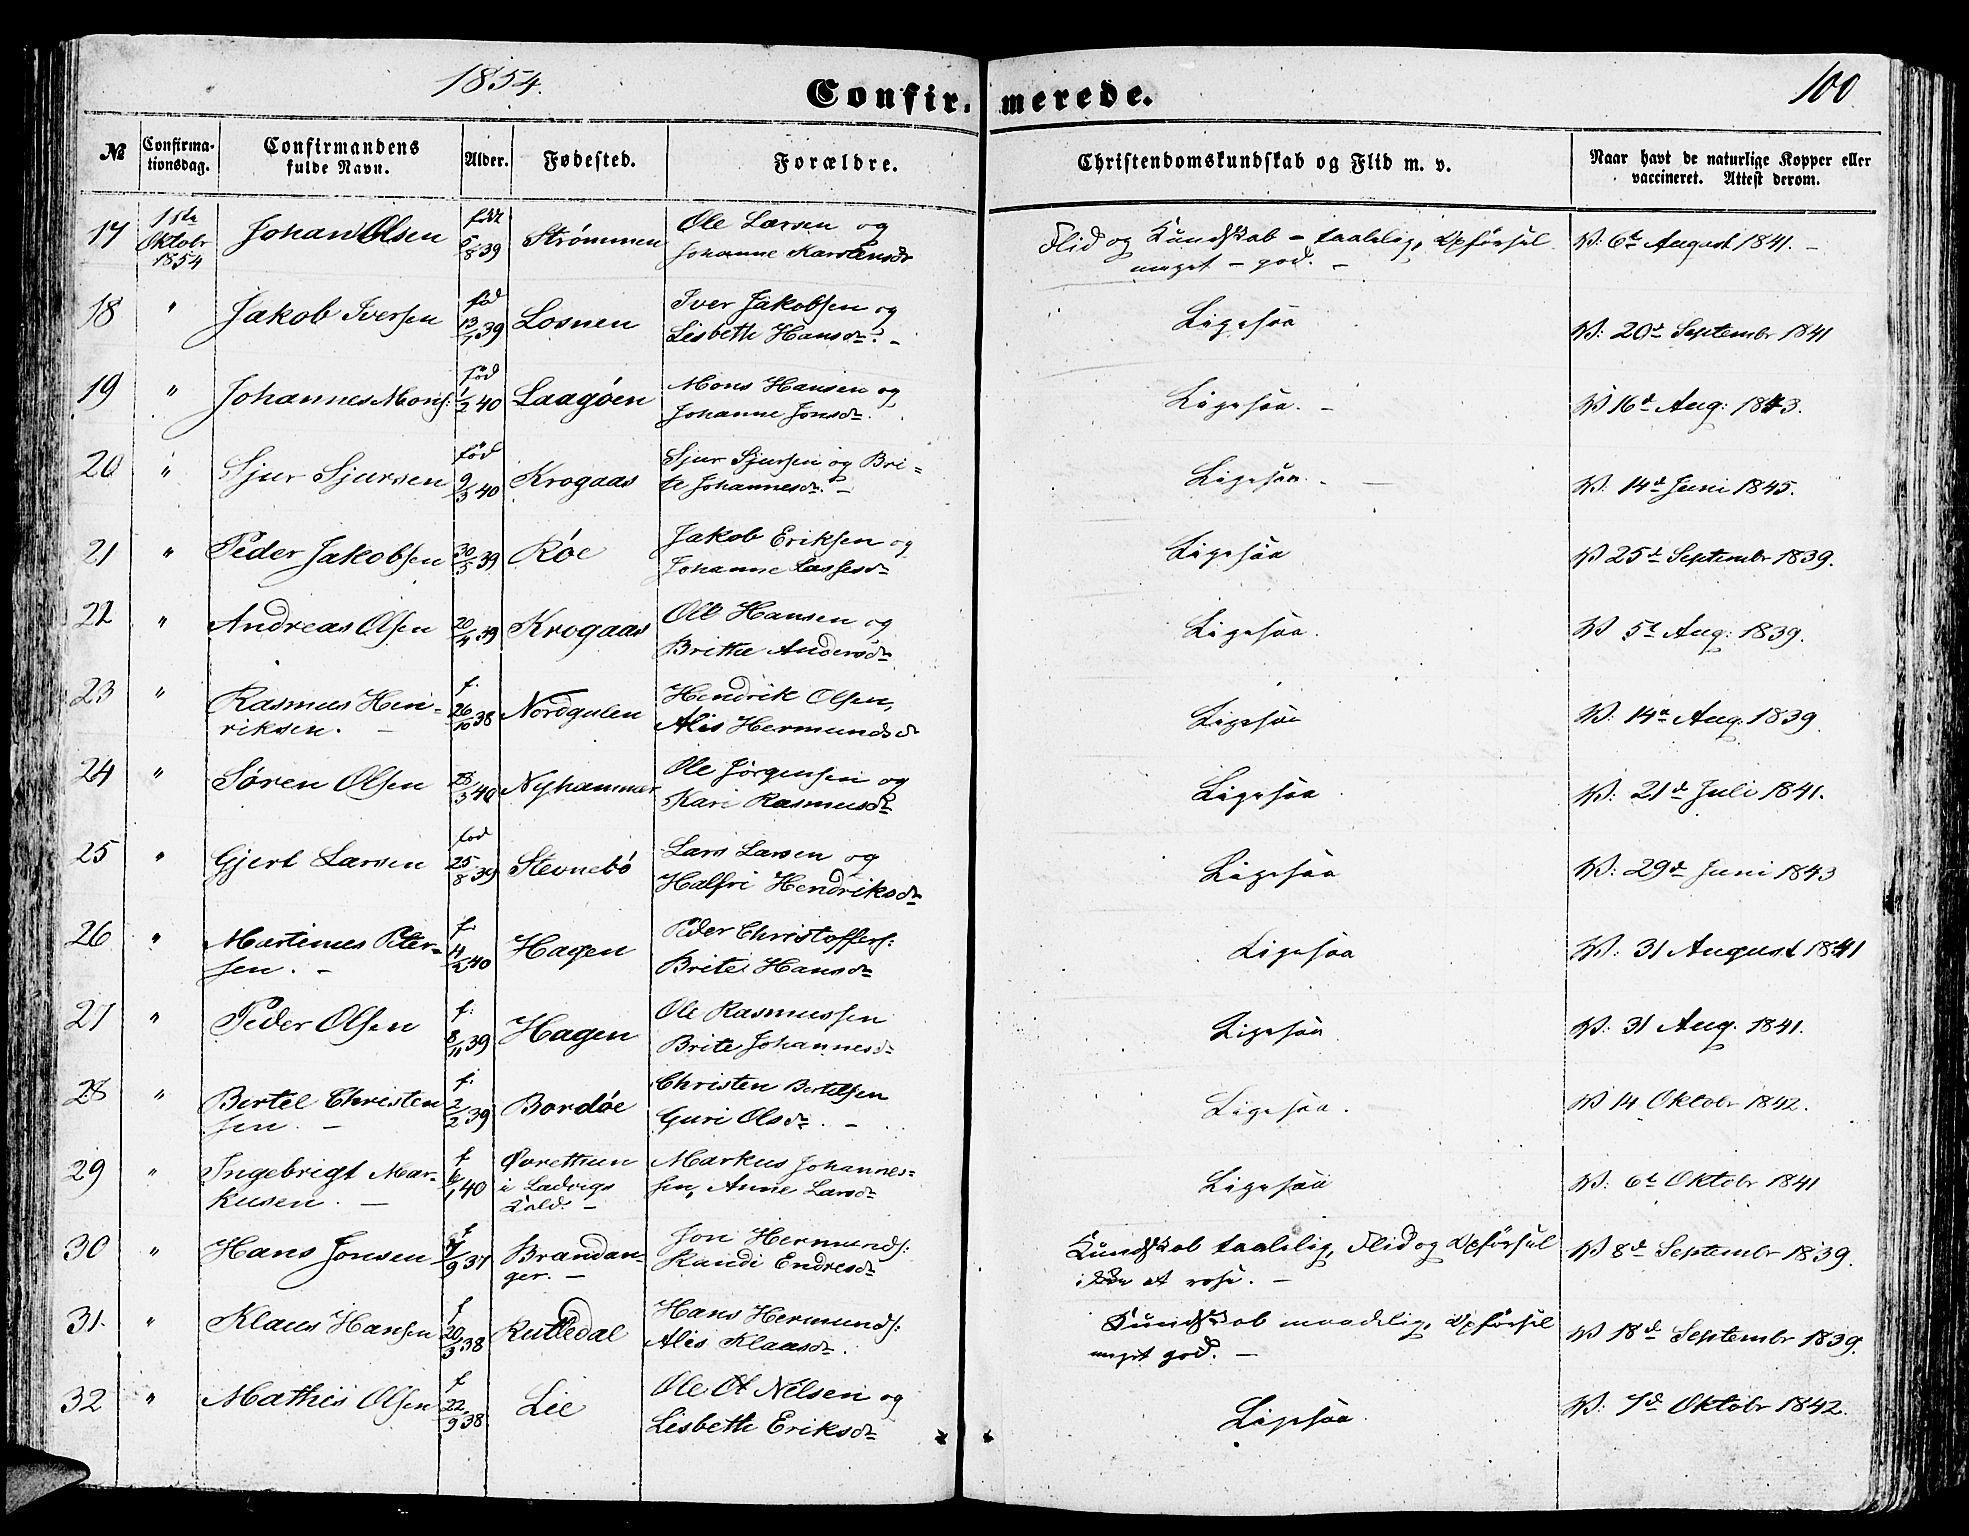 1854.
Confirmerede.
100
№
Confirmationsdag.
Confirmandens fulde Navn.
Alder.
Fødested.
Forældre.
Christendomskundskab og Flid m. v.
Naar havt de naturlige Kopper eller vaccineret. Attest derom.
17 1ste Oktobr 1854 Johan Olsen 5/8 39 Strømmen Ole Larsen og Johanne Karstensdr Flid og Kundskab - taalelig, Opførsel meget - god. - V: 6te August 1841. -
18 " Jakob Iversen fød 13/1 39 Losnen Iver Jakobsen og Lisbeth Hansdr. - Ligesaa V: 20d Septembr 1841
19 " Johannes Mons: fød 1/2 40 Laagøen Mons Hansen og Johanne Jonsdr. Ligesaa. - V 16d Aug: 1843.
20 " Sjur Sjursen fød 9/3 40 Krogaas Sjur Sjursen og Bri= te Johannesdr. - Ligesaa. - V: 14d Juni 1845.
21 " Peder Jakobsen 30/3 39 Røe Jakob Eriksen og Johanne Lassesdr Ligesaa V 25d Septembr 1839.
22 " Andreas Olsen 20/4 39 Krogaas Ole Hansen og Britha Andersdr Ligesaa. V 5t Aug: 1839.
23 " Rasmus Hen- riksen. - f. 26/10 38 Nordgulen Hendrik Olsen, Alis Hermundsd Ligesaa V: 14d Aug: 1839
24 " Søren Olsen /3 40 Nyhammer Ole Jørgensen og Kari Rasmusdr Ligesaa V: 21d Juli 1841.
25 " Gjert Larsen fød 25/8 39 Stevnebø Lars Larsen og Halfri Hendriksdr Ligesaa V: 29d Juni 1843
26 " Martinus Peter= sen. - f. 40 Hagen Peder Christoffers: Brite Hansdr Ligesaa V: 31 August 1841
27 " Peder Olsen f: 8/11 39 Hagen Ole Rasmussen Brite Johannesdr Ligesaa V: 31 Aug. 1841.
28 " Bertel Christen sen. - f. 2/2 39 Bordøe Christen Bertelsen Guri Olsdr. - Ligesaa. V 14 Oktobr 1842.
29 " Ingebrigt Mar- kusen. - f 6/1 40 Øvrettun i Ladvigs Sold. - Markus Johannes= sen, Anne Larsdr Ligesaa V: 6t Oktobr 1841
30 " Hans Jonsen f /9 37 Brandan- ger. - Jon Hermunds: Randi Endresdr Kundskab taalelig, Flid og Opførsel ikke at rose. - V 8d Septembr 1839.
31. " Klaus Hansen f 20/3 38 Rutledal Hans Hermunds: Alis Klaasdr. Kundskab maadelig, Opførsel meget god. - V 18d Septembr 1839.
32 " Mathis Olsen f 22/9 38 Lie Ole Nilsen og Lisbeth Eriksdr Ligesaa. V: 7d Oktobr 1842.